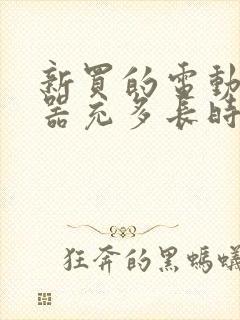 新買的電動
器充多長時
狂奔的黑螞蟻